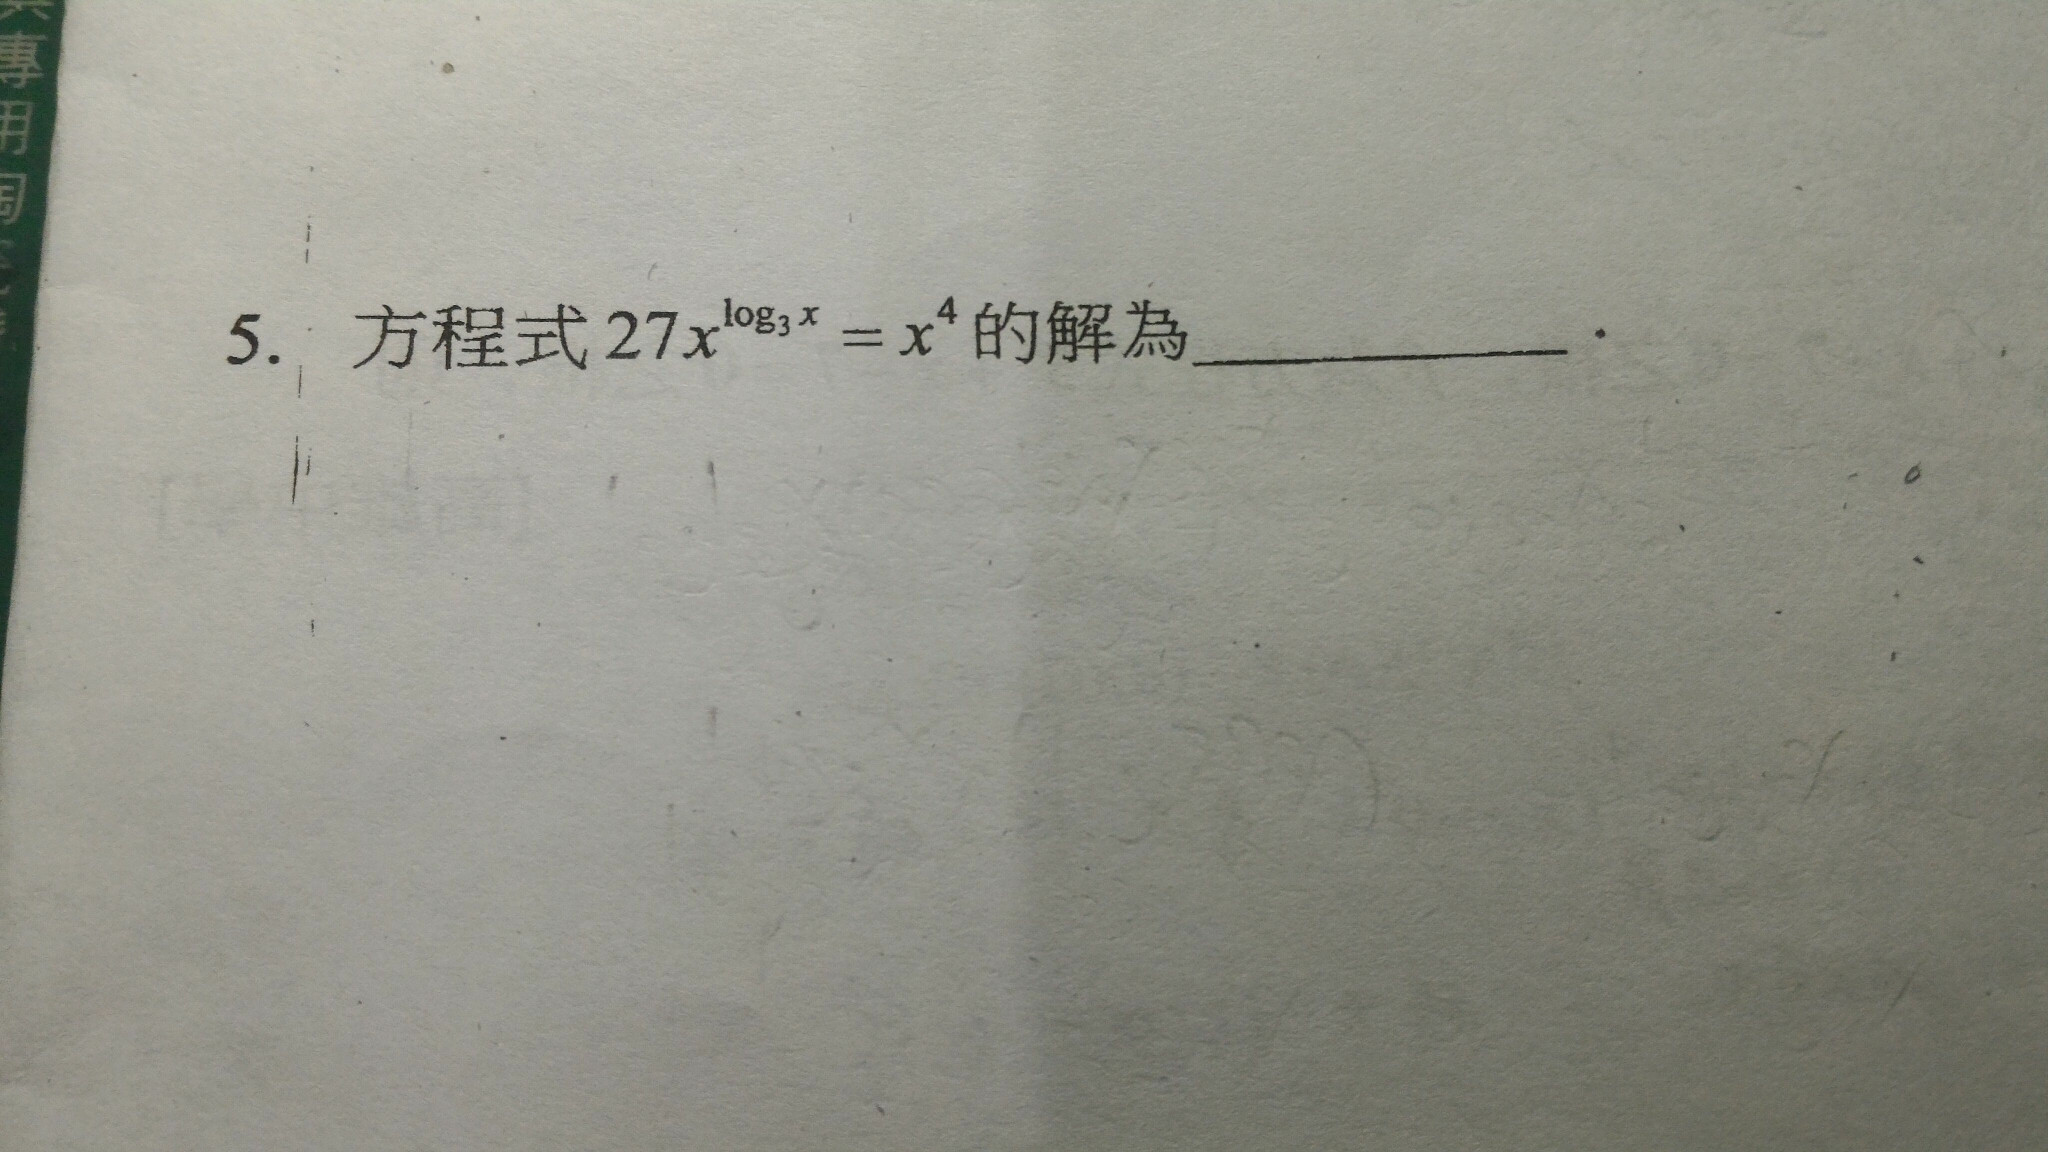 專用
5. 方程式 27x^{log_3 x} = x^4 的解為__________.